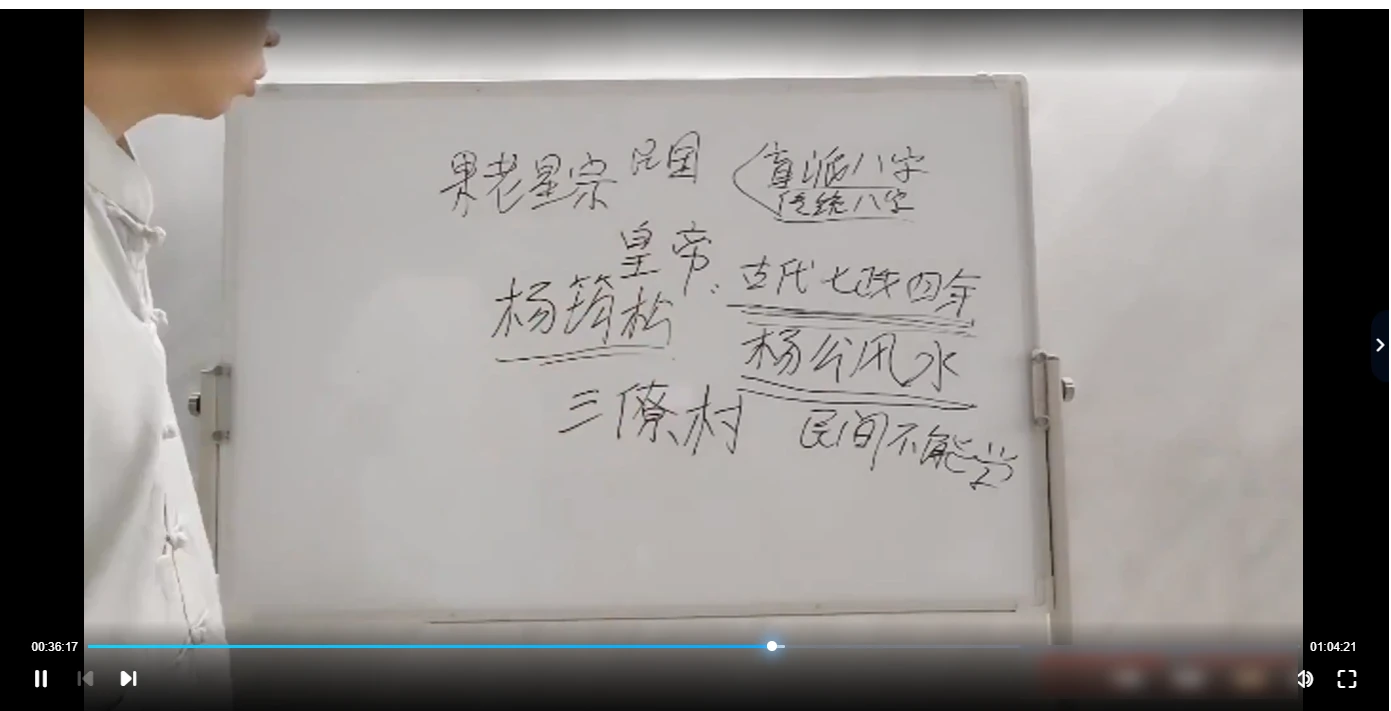 果老星宗 民国 直派八字
传统八字
皇帝: 古代七政四余
杨筠松 杨公风水
三僚村 民间不能学
00:36:17 01:04:21